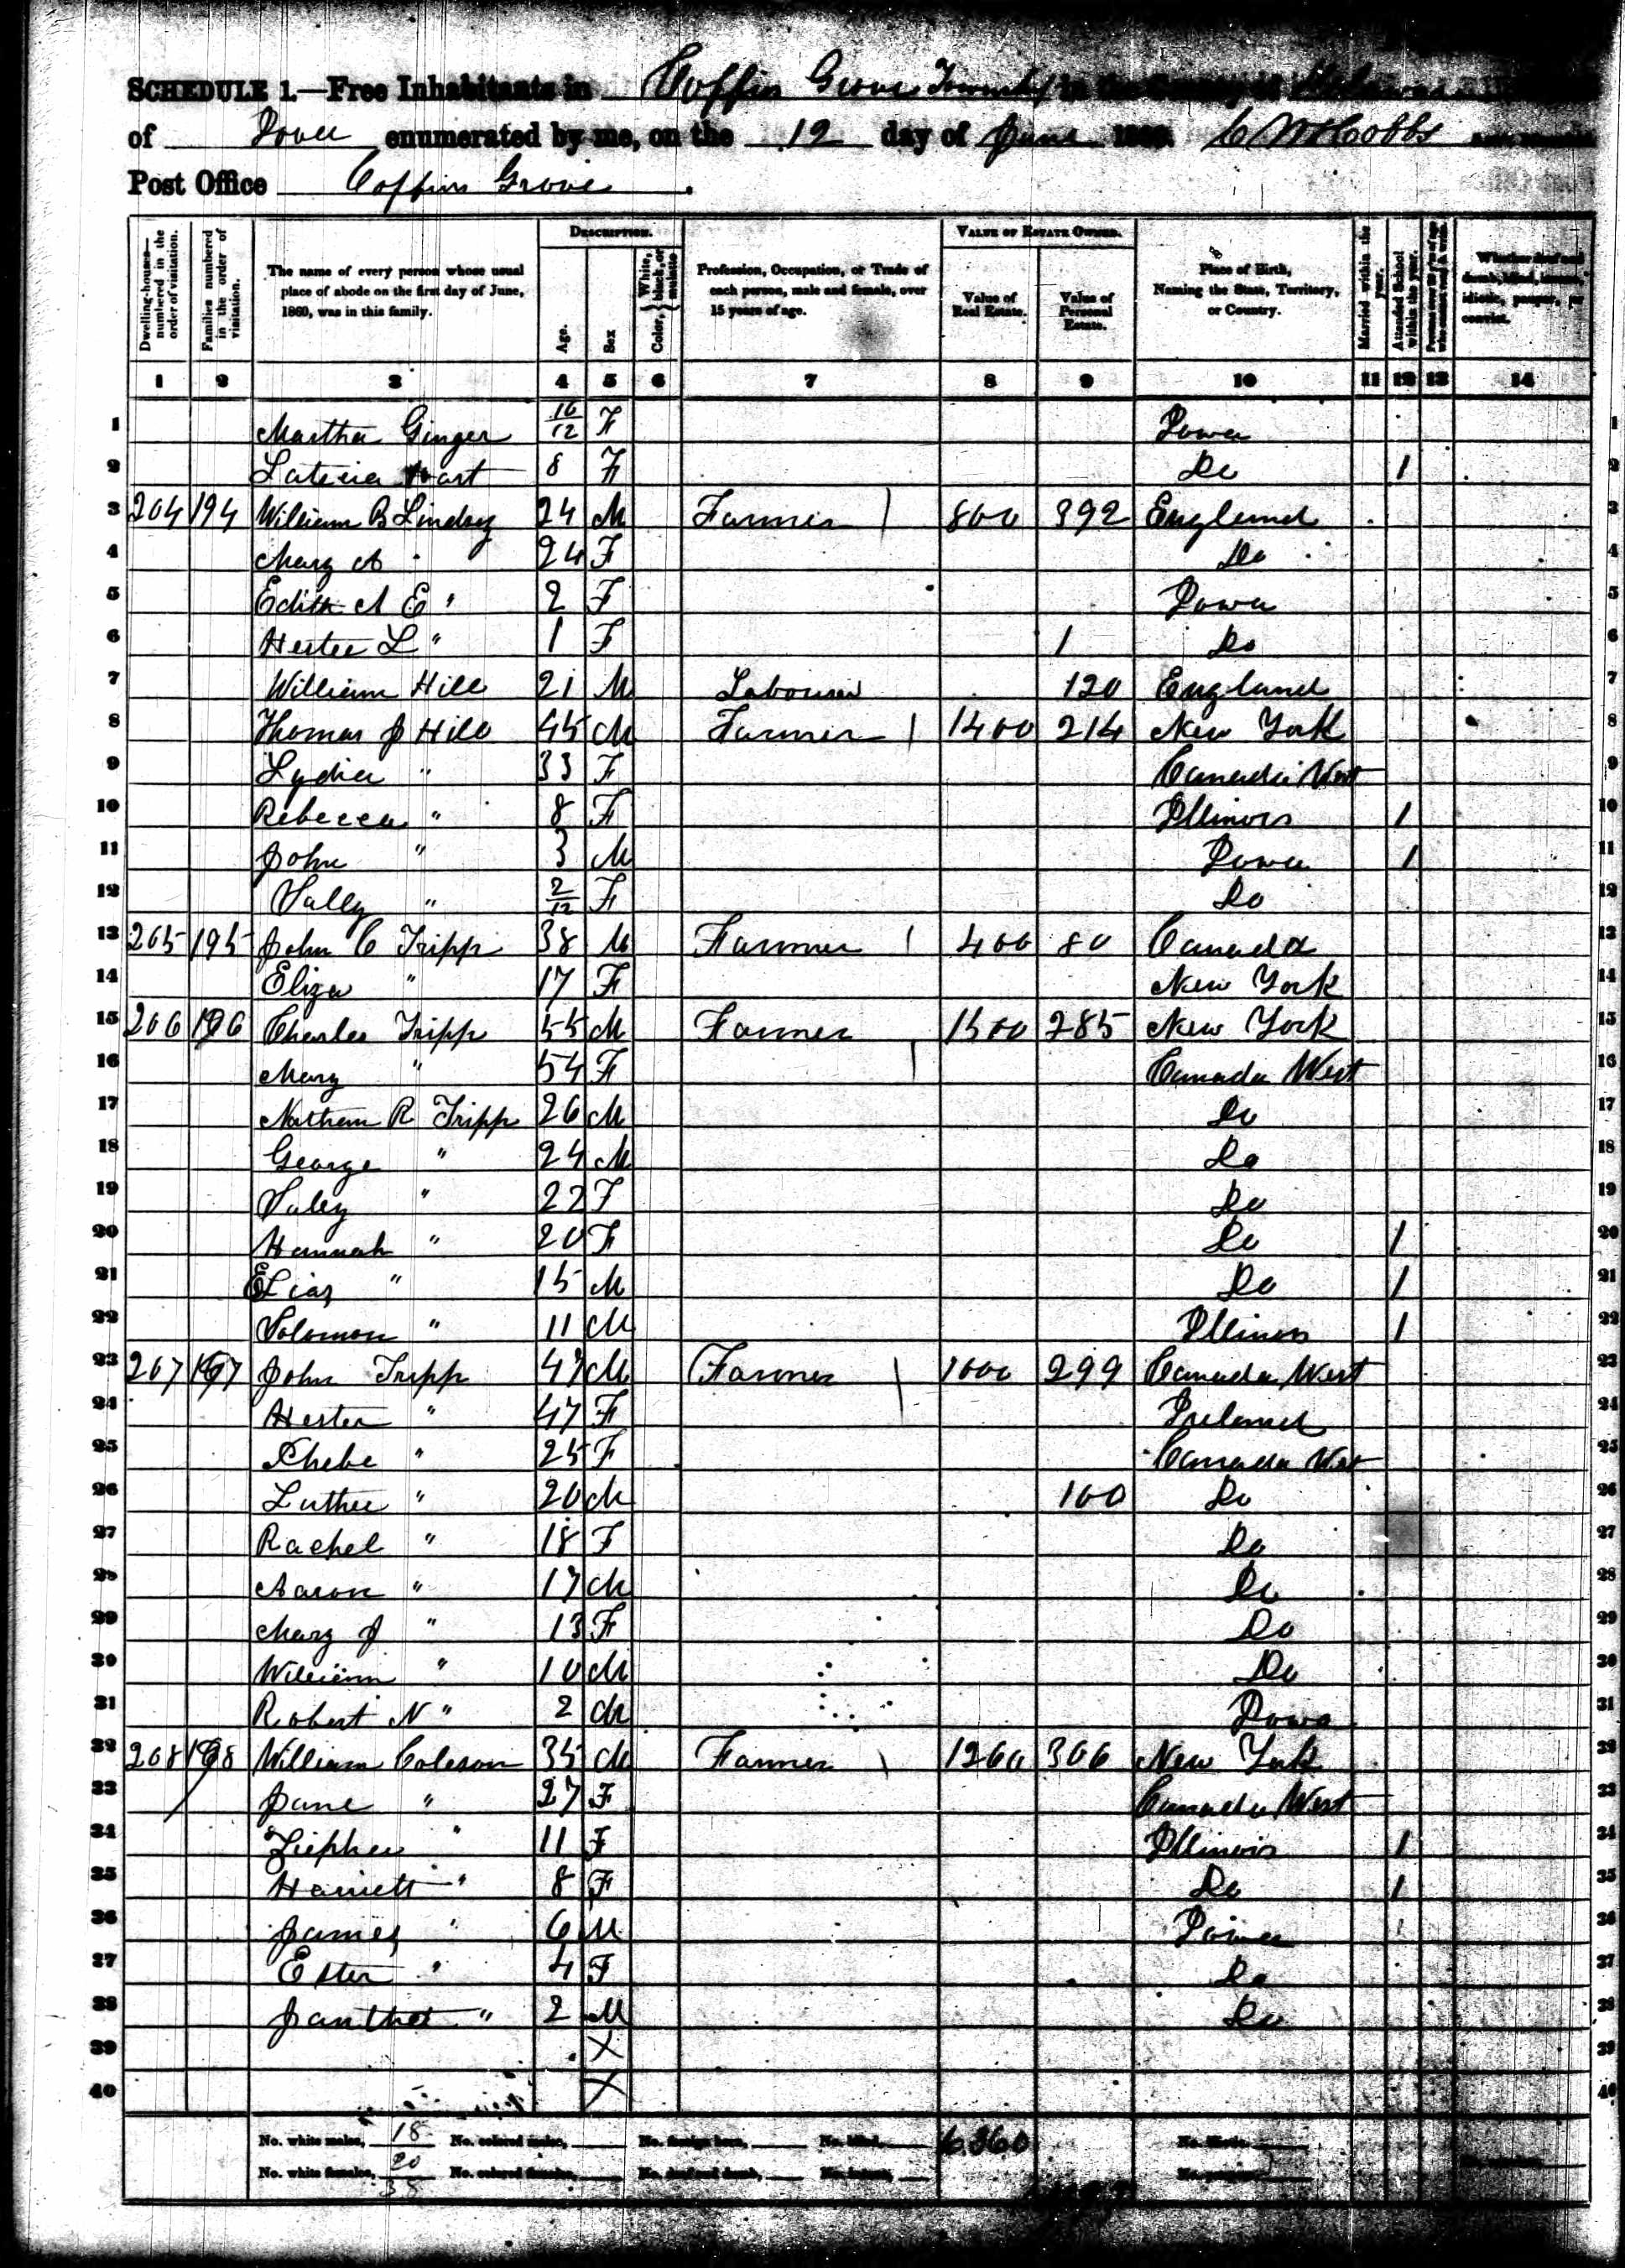 SCHEDULE 1.—Free Inhabitants in Coffin Grove Township in the County of
of Iowa enumerated by me, on the 12 day of June 1860. Cobbs
Post Office Coffins Grove.
Dwelling-houses—numbered in the order of visitation.
Families numbered in the order of visitation.
The name of every person whose usual place of abode on the first day of June, 1860, was in this family.
DESCRIPTION.
Age.
Sex
Color, { White, black, or mulatto
Profession, Occupation, or Trade of each person, male and female, over 15 years of age.
VALUE OF ESTATE OWNED.
Value of Real Estate.
Value of Personal Estate.
Place of Birth, Naming the State, Territory, or Country.
Married within the year.
Attended School within the year.
Whether deaf and dumb, blind, insane, idiotic, pauper, or convict.
1 2 3 4 5 6 7 8 9 10 11 12 13 14
1 Martha Ginger 10/12 F Iowa 1
2 8 F Do 1 2
3 204 194 William B Lindsey 24 M Farmer 800 392 England 3
4 Mary A 24 F Do 4
5 Edith A E " 2 F Iowa 5
6 Hester L " 1 F 1 Do 6
7 William Hill 21 M Labourer 120 England 7
8 Thomas J Hill 45 M Farmer 1400 214 New York 8
9 Lydia " 33 F Canada West 9
10 Rebecca " 8 F Illinois 1 10
11 John " 3 M Iowa 1 11
12 Sally " 2/12 F Do 12
13 205 195 John C Tripp 38 M Farmer 400 80 Canada 13
14 Eliza " 17 F New York 14
15 206 196 Charles Tripp 55 M Farmer 1500 285 New York 15
16 Mary " 54 F Canada West 16
17 Nathan R Tripp 26 M Do 17
18 George " 24 M Do 18
19 Saley " 22 F Do 19
20 Hannah " 20 F Do 1 20
21 Elias " 15 M Do 1 21
22 Solomon " 11 M Illinois 1 22
23 207 197 John Tripp 47 M Farmer 1000 299 Canada West 23
24 Hester " 47 F Ireland 24
25 Phebe " 25 F Canada West 25
26 Luther " 20 M 100 Do 26
27 Rachel " 18 F Do 27
28 Aaron " 17 M Do 28
29 Mary J " 13 F Do 29
30 William " 10 M Do 30
31 Robert N " 2 M Iowa 31
32 208 198 William Coleson 35 M Farmer 1260 306 New York 32
33 Jane " 27 F Canada West 33
34 " 11 F Illinois 1 34
35 Harriett " 8 F Do 1 35
36 James " 6 M Iowa 36
37 Ester " 4 F Do 37
38 " 2 M Do 38
39 X 39
40 X 40
No. white males, 18 No. colored males, No. foreign born, No. blind, 6,360
No. white females, 20 No. colored females, No. deaf and dumb, No. insane,
38